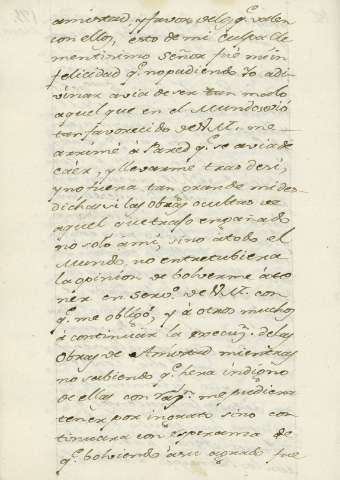 amistad, y favor de los q.e valen
con ellos, esto de mi culpa Cle
mentisimo Señor fué mi in
felicidad q.e no pudiendo Yo adi
vinar avia de ser tan malo
aquel que en el Mundo vió
tan favorecido de V.M. me
arrimé á Pared q.e se avia de
caér, y llevarme tras de si,
y no fuera tan grande mi des
dicha si las Obras ocultas de
aquel que trajo engañado
no solo a mi, sino á todo el
Mundo, no entretubiera
la opinion de bolverme á po
nér en serv.o de V.M. con
q.e me obligó, y á otros muchos
á continuár la de las
Obras de Amistad mientras
no sabiendo q.e hera indigno
de ellas con me pudiera
tenér por ingrato sino con
tinuara con esperanza de
q.e bolviendo á su agrado fue